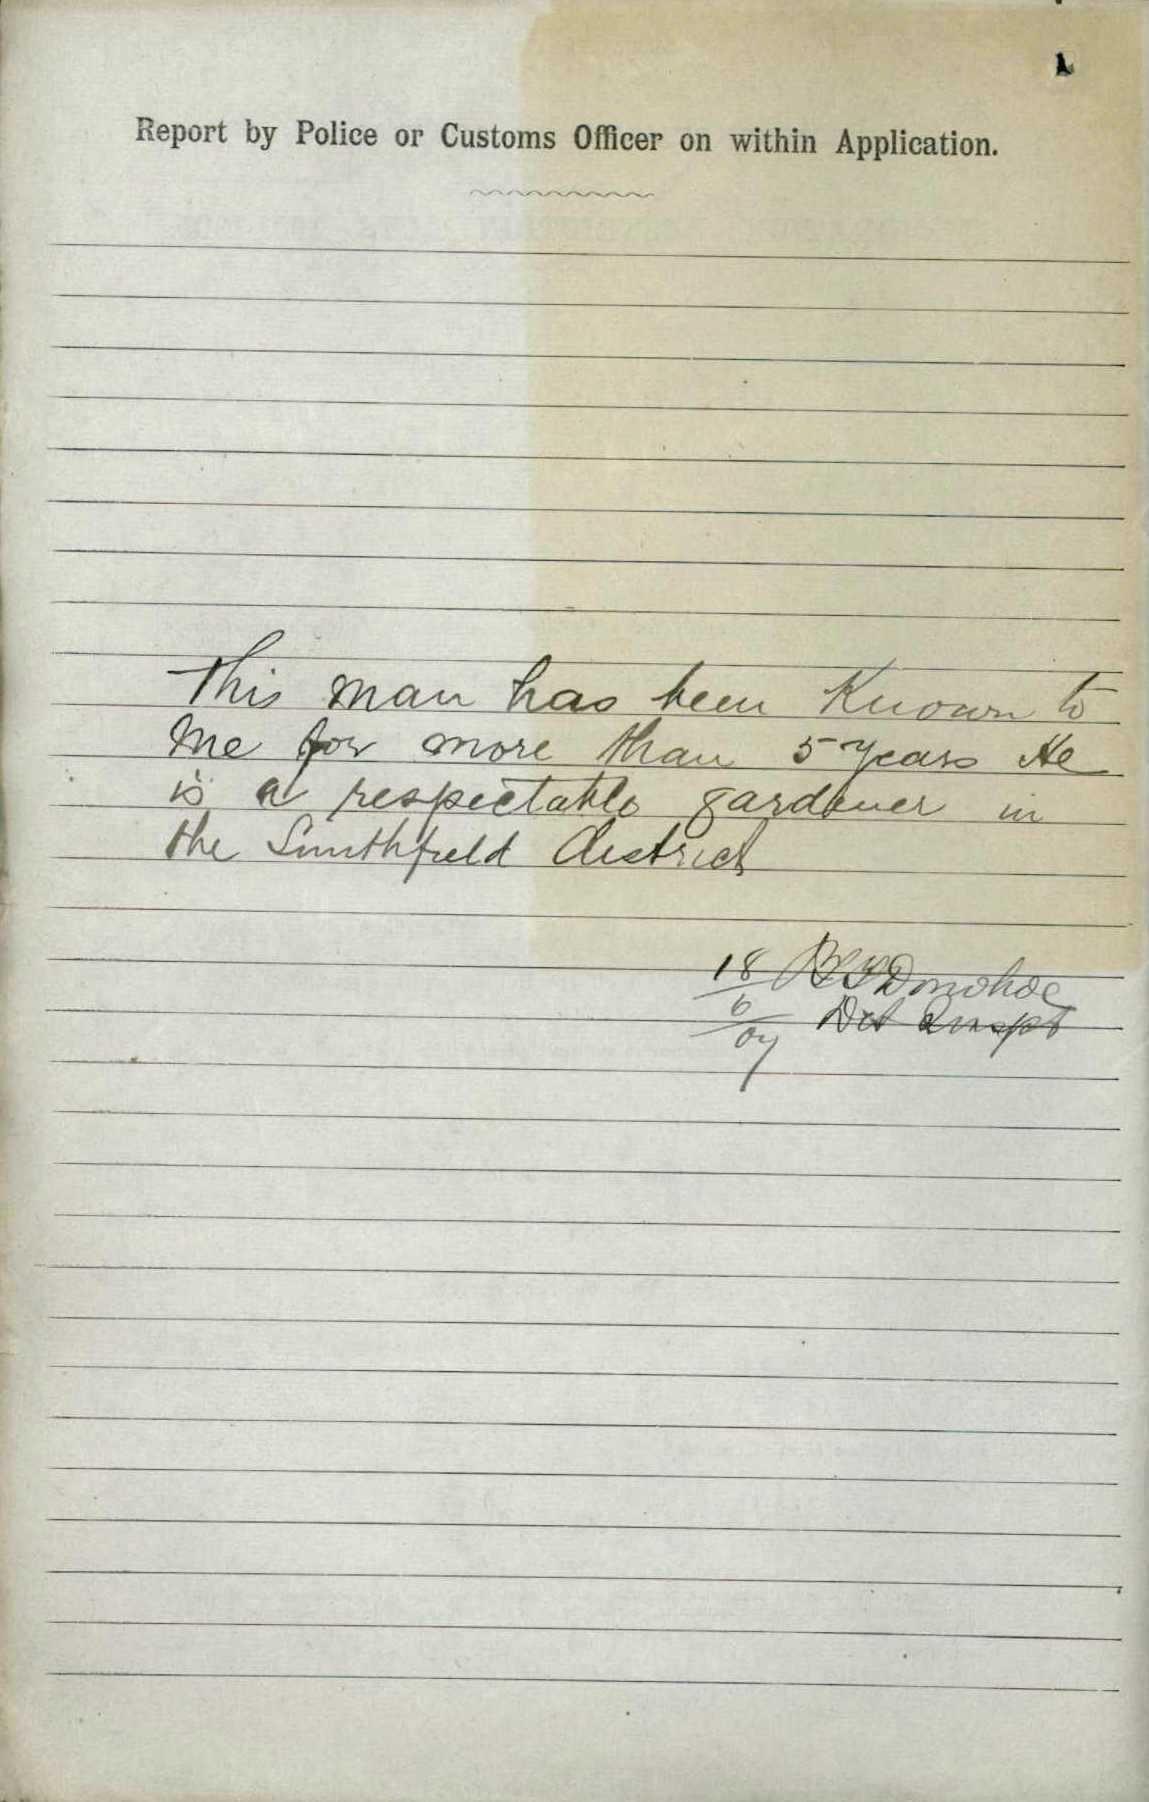 Report by Police or Customs Officer on within Application.
This man has been Known to
me for more than 5 years He
is a respectable gardener in
the Smithfield district
18 Donohoe
6 Det Inspt
07